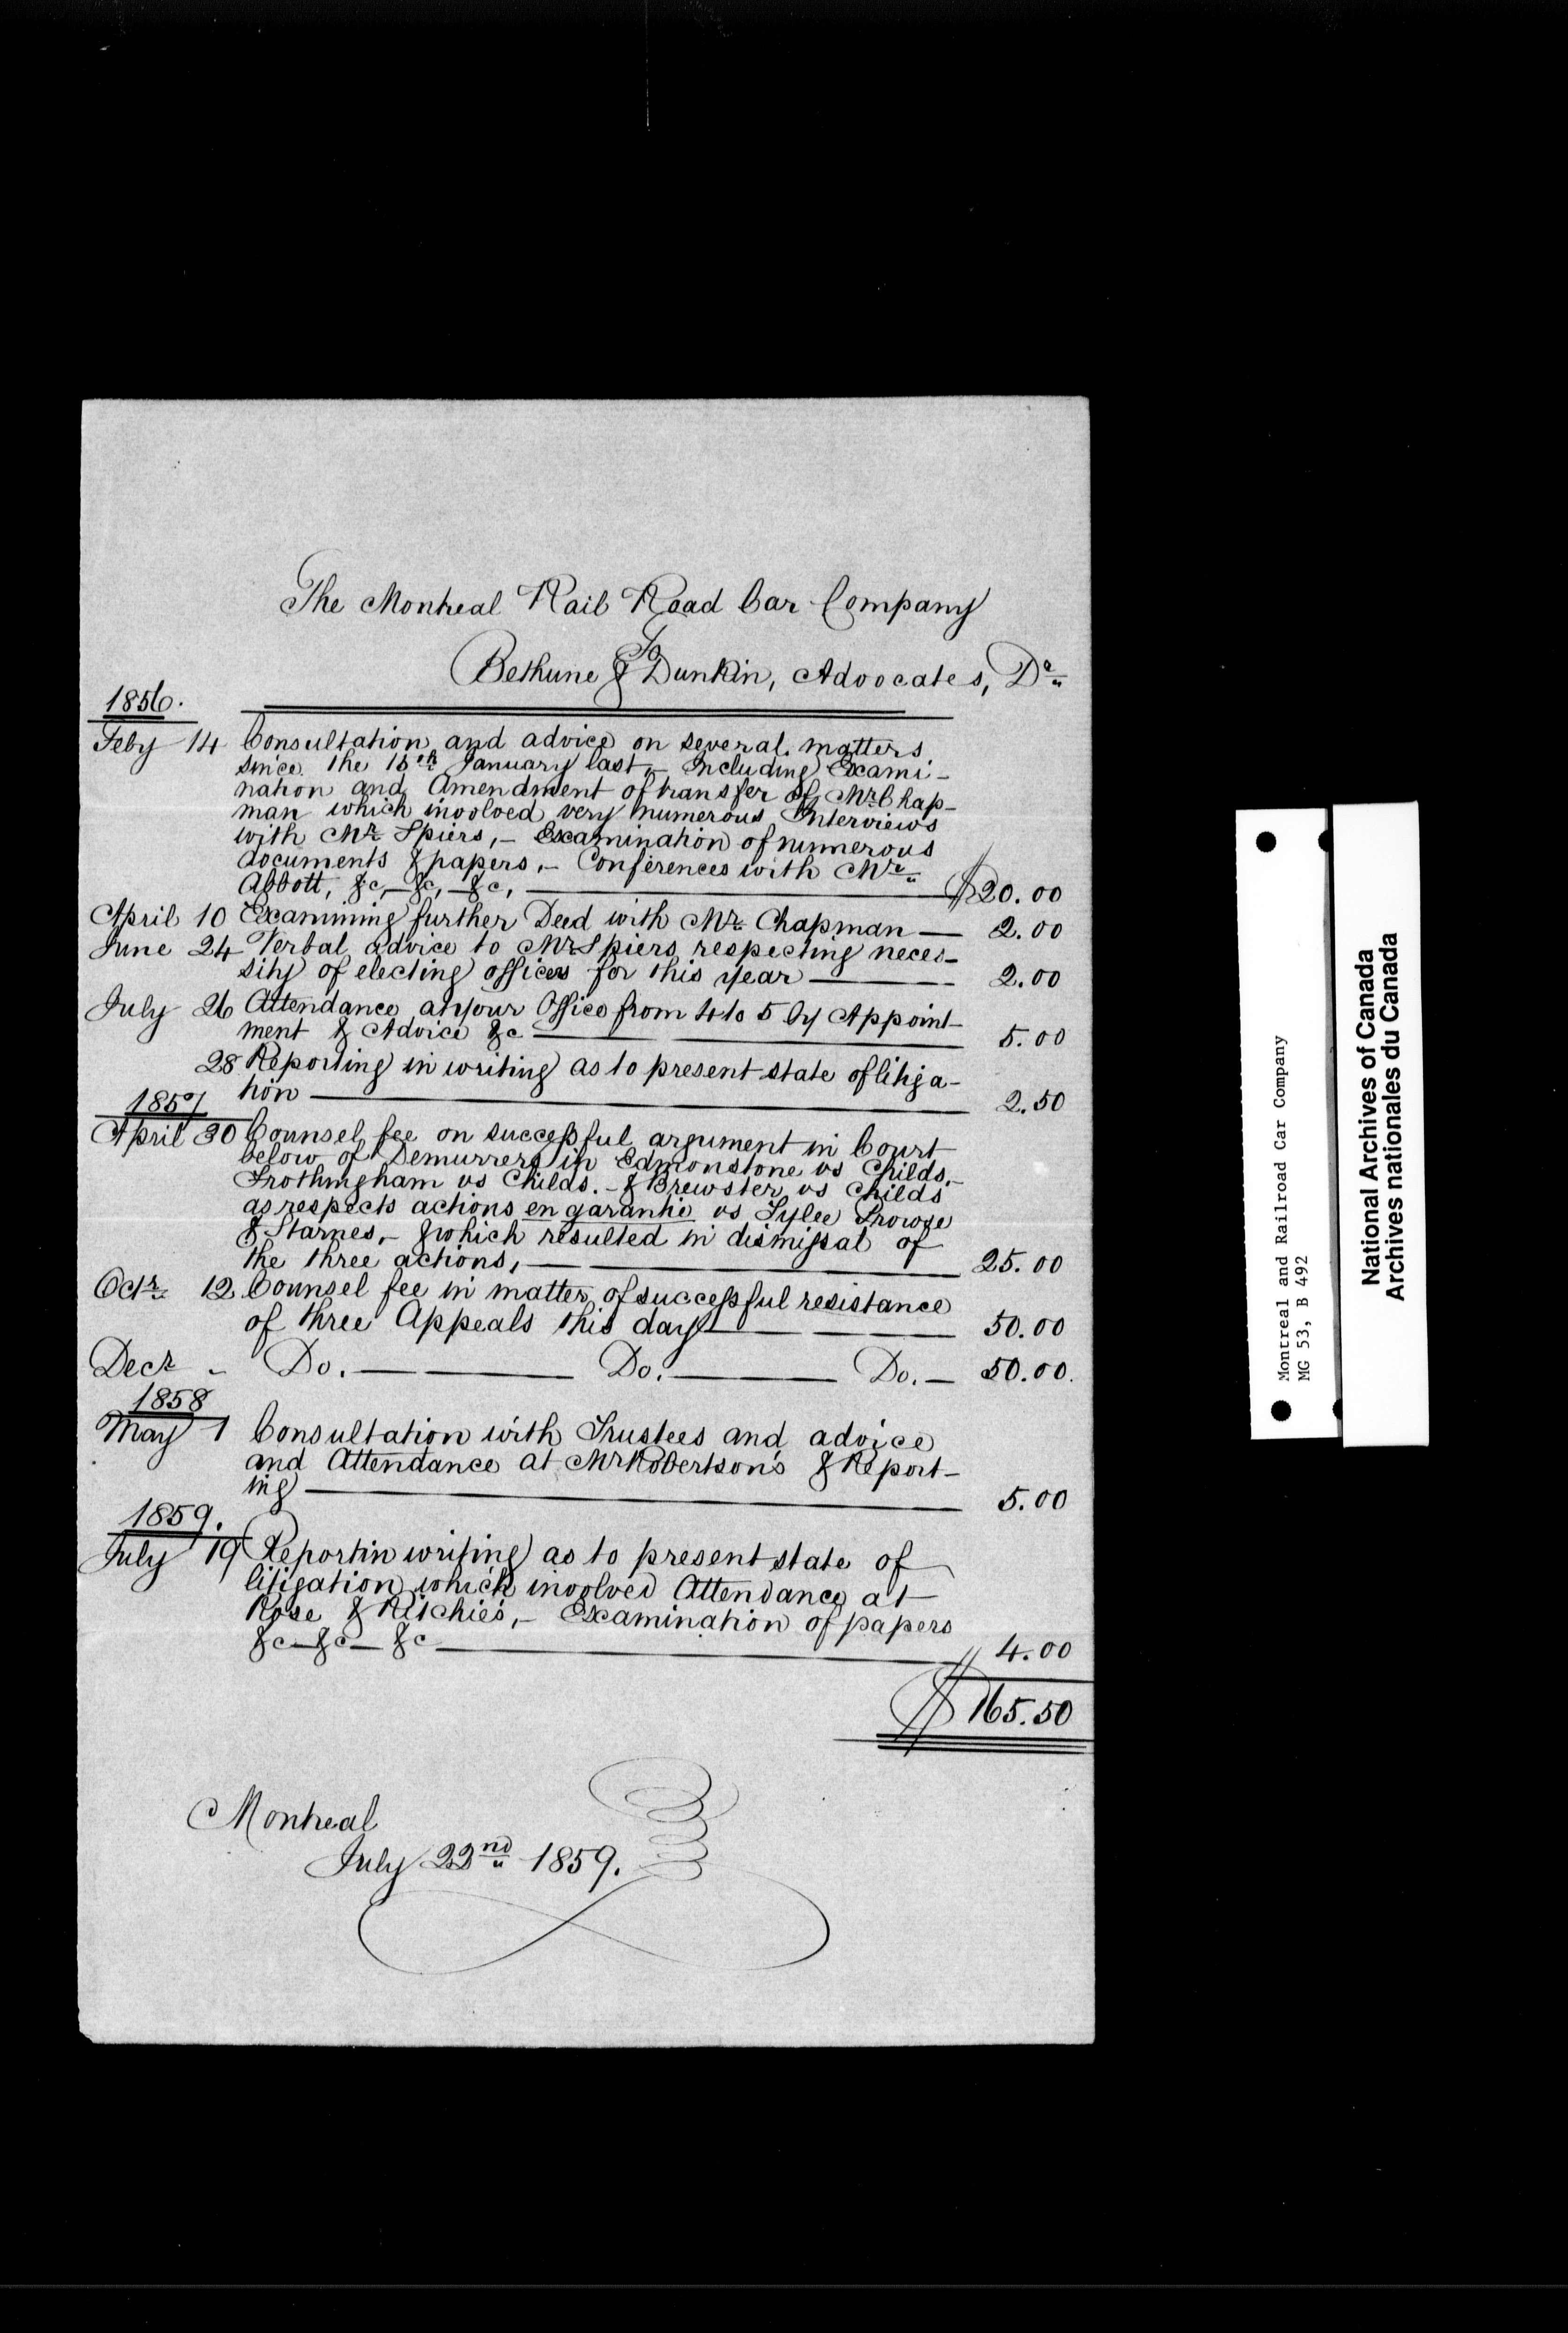 The Montreal Rail Road Car Company
To
Bethune & Dunkin, Advocates, Dr
1856.
Feby 14 Consultation and advice on several matters
since the 15th January last, – Including Exami-
nation and Amendment of transfer of Mr Chap-
man which involved very numerous Interviews
with Mr Spiers, – Examination of numerous
documents & papers, – Conferences with Mr
Abbott, &c, – &c, – &c, $20.00
April 10 Examining further Deed with Mr Chapman — 2.00
June 24 Verbal advice to Mr Spiers respecting neces-
sity of electing officers for this year — 2.00
July 26 Attendance at your Office from 4 to 5 by Appoint-
ment & Advice &c — 5.00
28 Reporting in writing as to present state of litiga-
tion — 2.50
1857
April 30 Counsel fee on successful argument in Court
below of Demurrers in Edmonstone vs Childs, –
Frothingham vs Childs. – & Brewster vs Childs
as respects actions en garantie vs Tylee Prowse
& Starnes, – & which resulted in dismissal of
the three actions, — 25.00
Octr 12 Counsel fee in matter of successful resistance
of three Appeals this day — 50.00
Decr " Do. — Do. — Do. — 50.00.
1858
May 1 Consultation with Trustees and advice
and Attendance at Mr Robertson's & Report-
ing — 5.00
1859.
July 19 Report in writing as to present state of
litigation which involved Attendance at
Rose & Ritchie's, – Examination of papers
&c – &c – &c — 4.00
$165.50
Montreal
July 22nd 1859.
Montreal and Railroad Car Company
MG 53, B 492
National Archives of Canada
Archives nationales du Canada